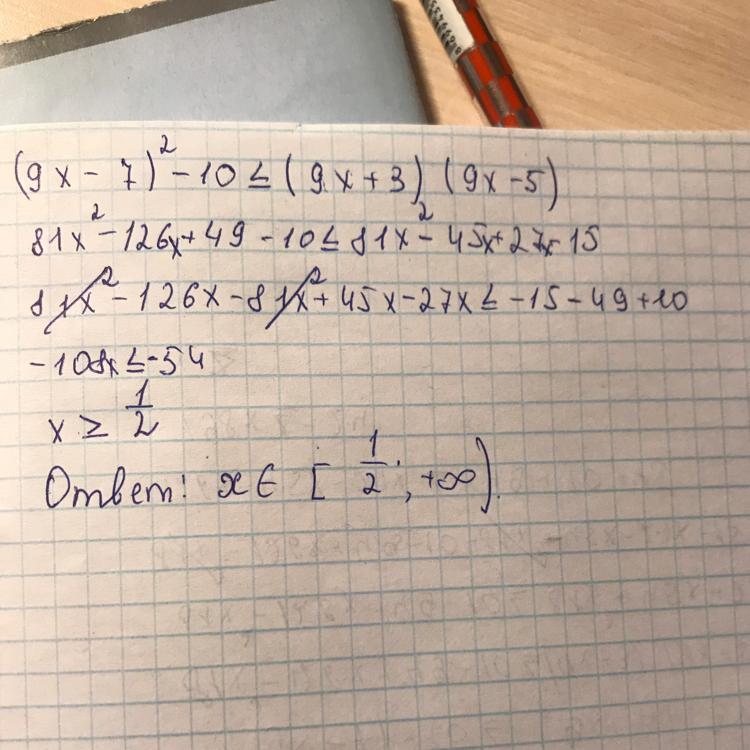 (9x - 7)² - 10 ≤ (9x + 3) (9x - 5)
81x² - 126x + 49 - 10 ≤ 81x² - 45x + 27x - 15
81x² - 126x - 81x² + 45x - 27x ≤ -15 - 49 + 10
-108x ≤ -54
x ≥ 1/2
Ответ: x ∈ [ 1/2 ; +∞).